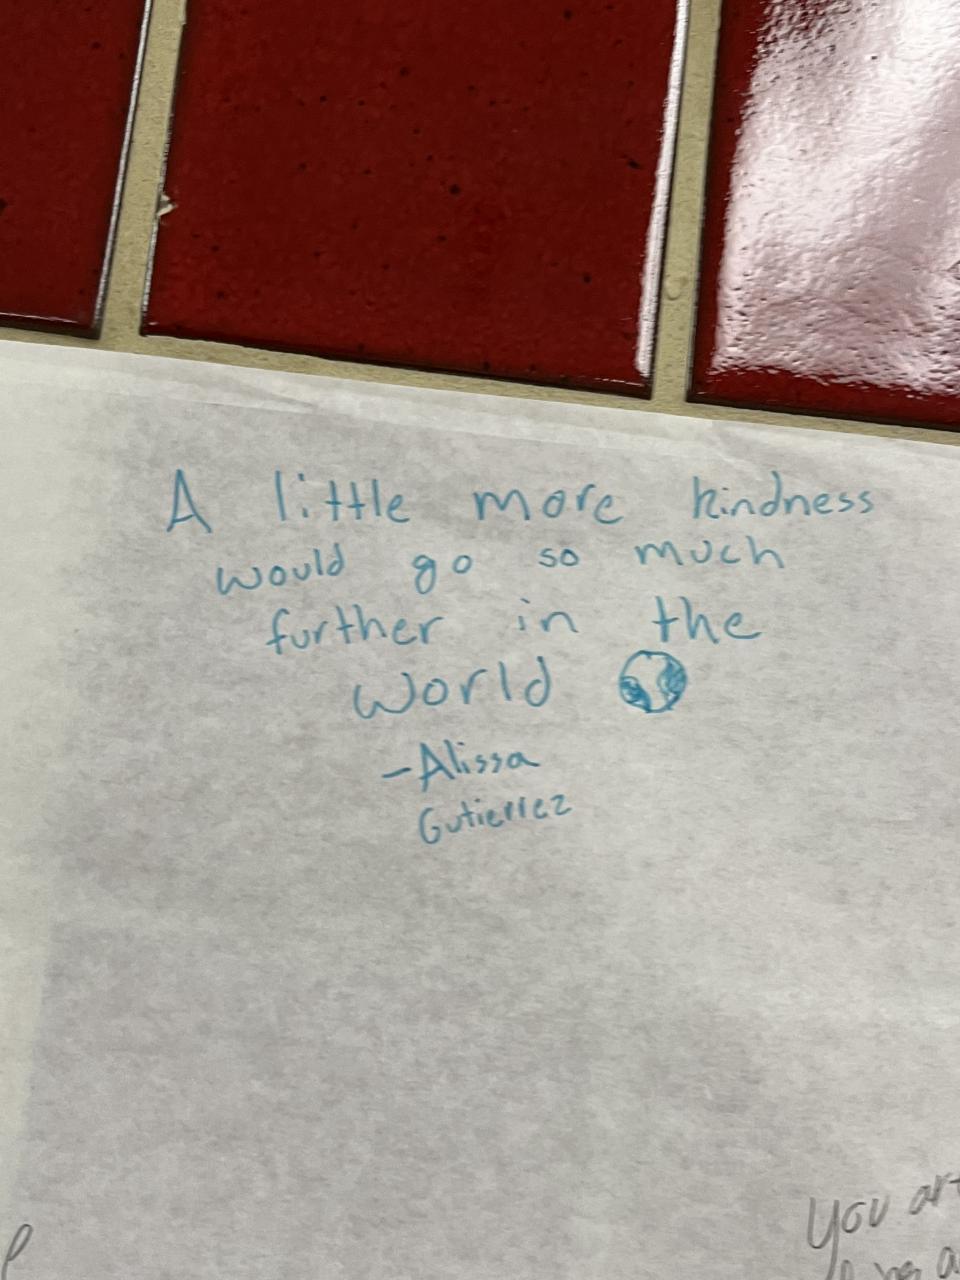 A little more kindness
would go so much
further in the
world
-Alissa
Gutierrez
You